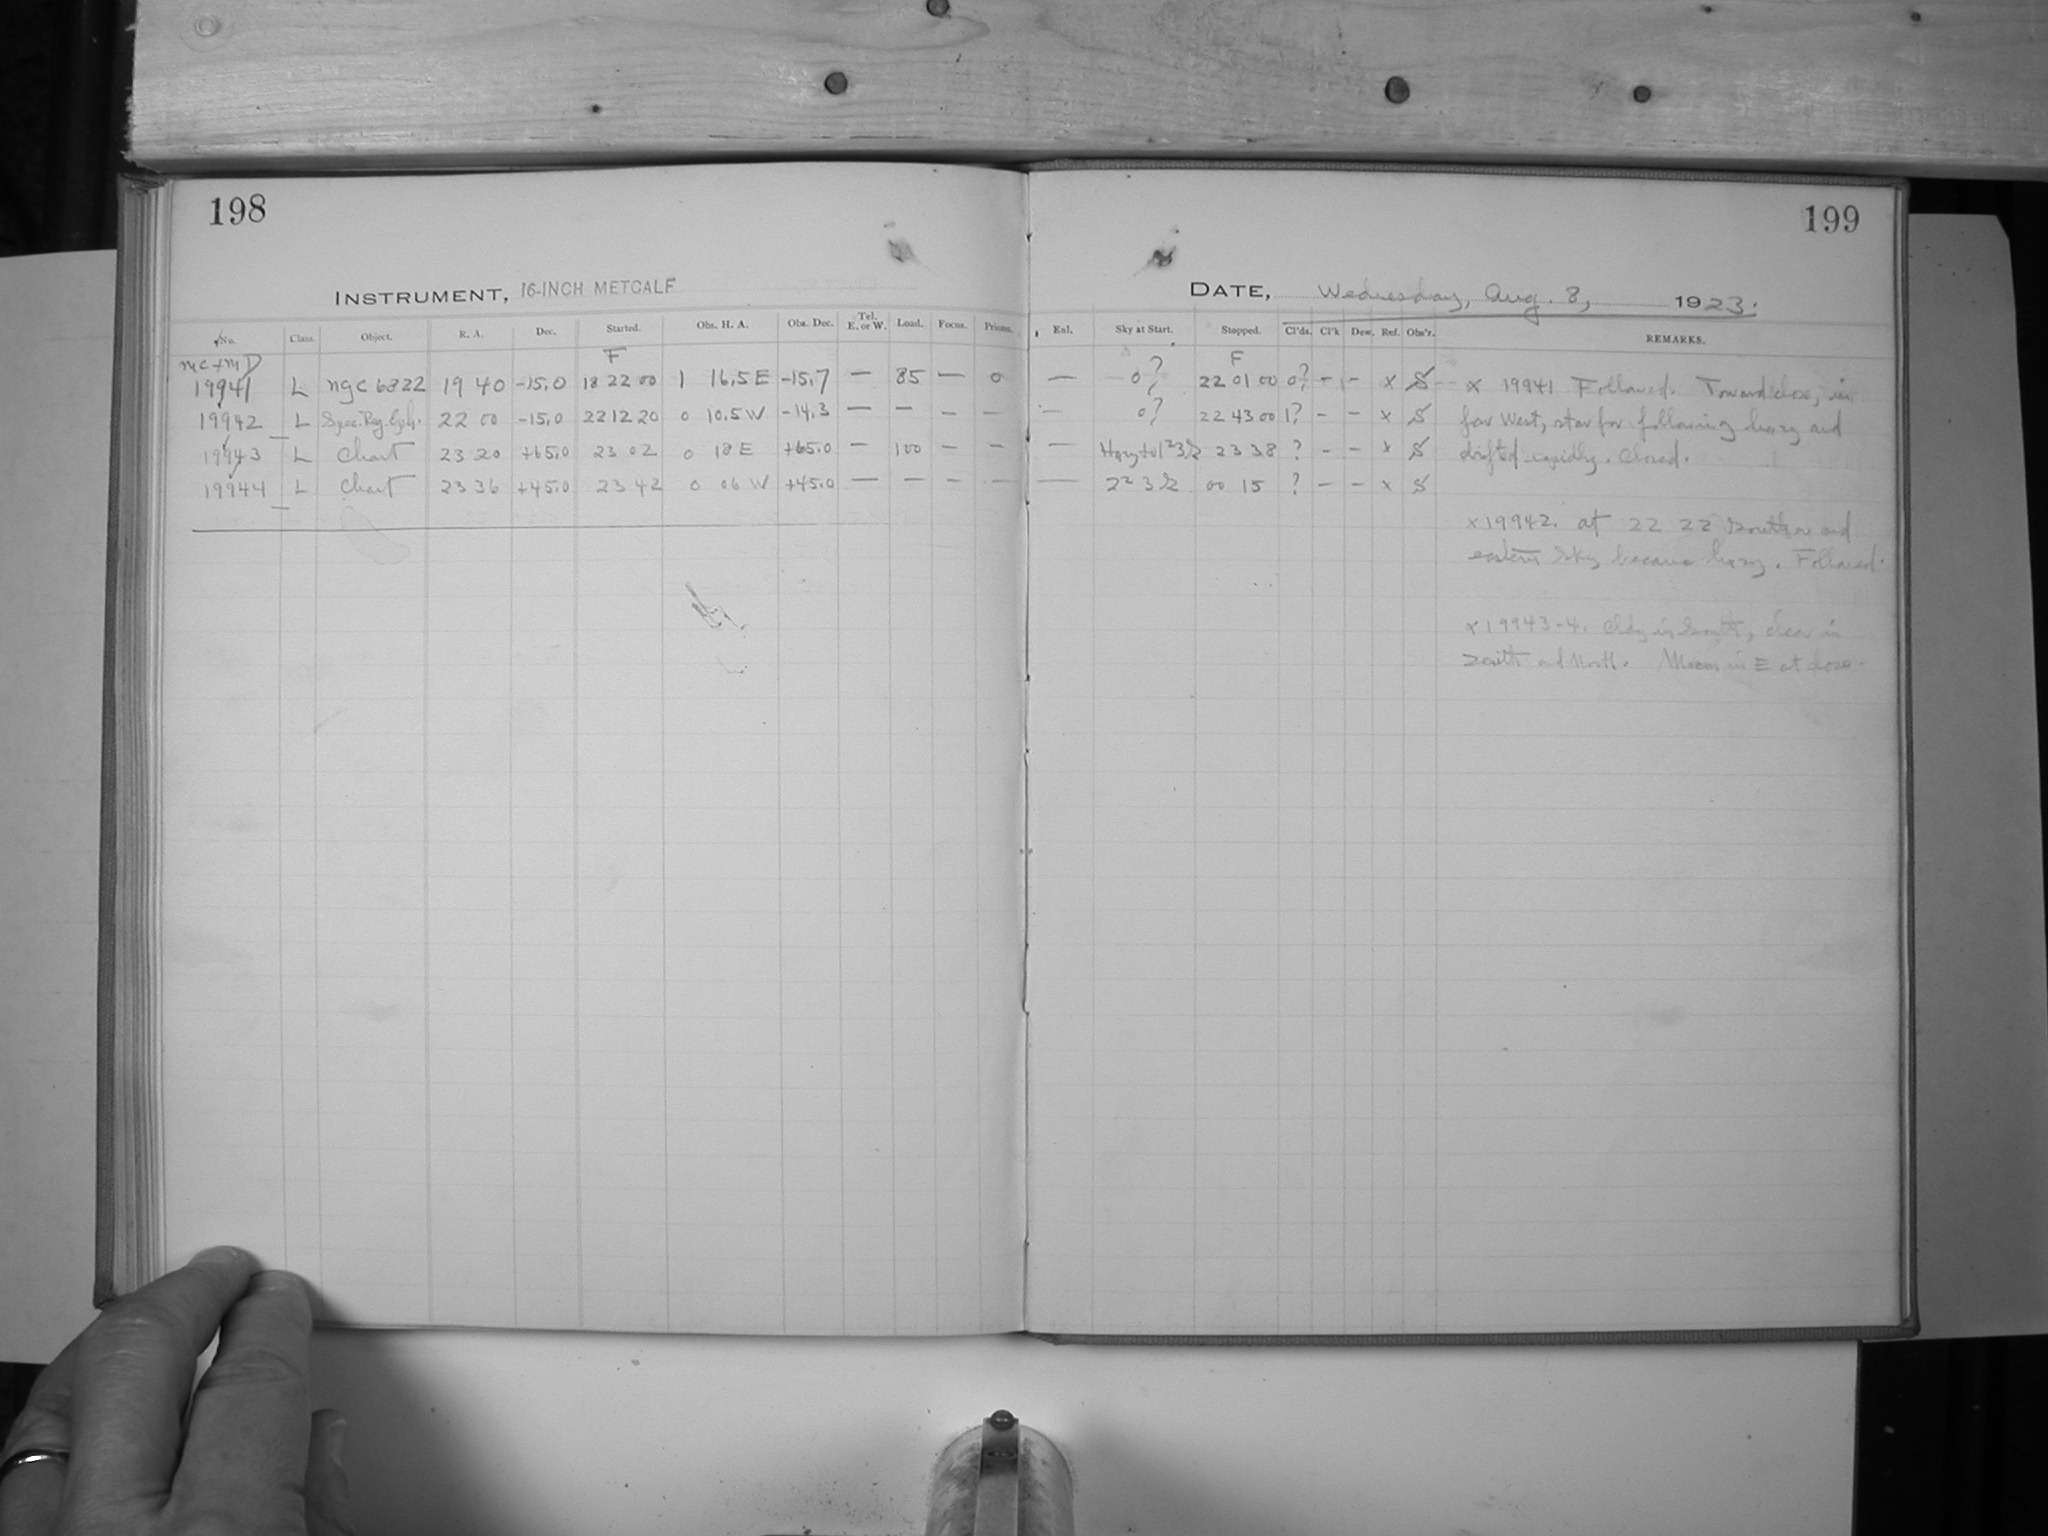 198
INSTRUMENT, 16-INCH METCALF
No. Class. Object. R. A. Dec. Started. Obs. H. A. Obs. Dec. Tel. E. or W. Load. Focus. Prisms.
MC + MD F
19941 L NGC 6822 19 40 -15.0 18 22 00 1 16.5 E -15.7 — 85 — 0
19942 L Spec. Reg. 22 00 -15.0 22 12 20 0 10.5 W -14.3 — — — —
19943 L Chart 23 20 +65.0 23 02 0 18 E +65.0 — 100 — —
19944 L Chart 23 36 +45.0 23 42 0 06 W +45.0 — — — —
199
DATE, Wednesday, Aug. 8, 1923.
Enl. Sky at Start. Stopped. Cl'ds. Cl'k Dew. Ref. Obs'r. REMARKS.
F
— 0? 22 01 00 0? - - x S
— 0? 22 43 00 1? - - x S
— 23 38 ? - - x S
— 00 15 ? - - x S
x 19941 Followed. Toward close, in
far West, star for following hazy and
drifted rapidly. Closed.
x 19942. at 22 22 Southern and
eastern sky became hazy. Followed.
x 19943-4. Cldy in South, clear in
zenith and North. Moon in E at close.